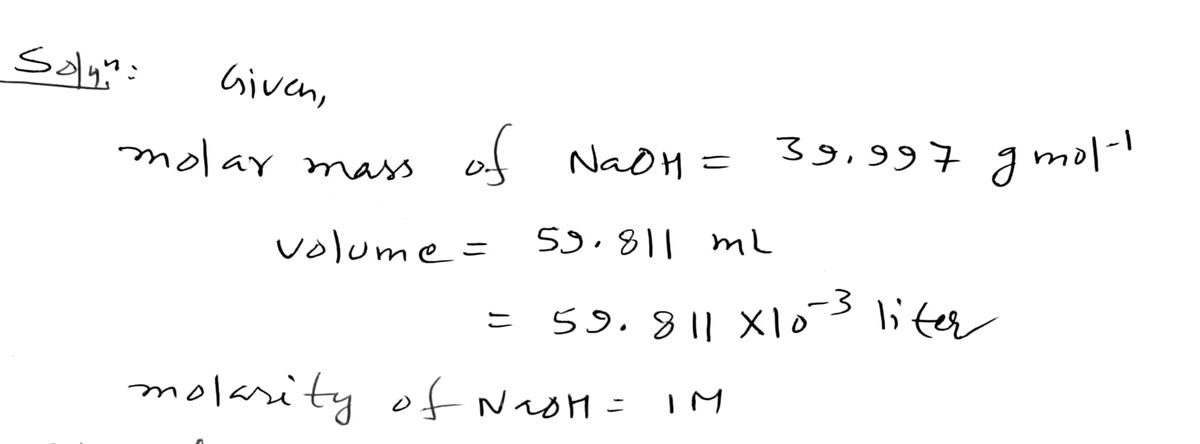 Solyⁿ: Given,
molar mass of NaOH = 39.997 g mol⁻¹
volume = 59.811 mL
= 59.811 X10⁻³ liter
molarity of NaOH = 1M